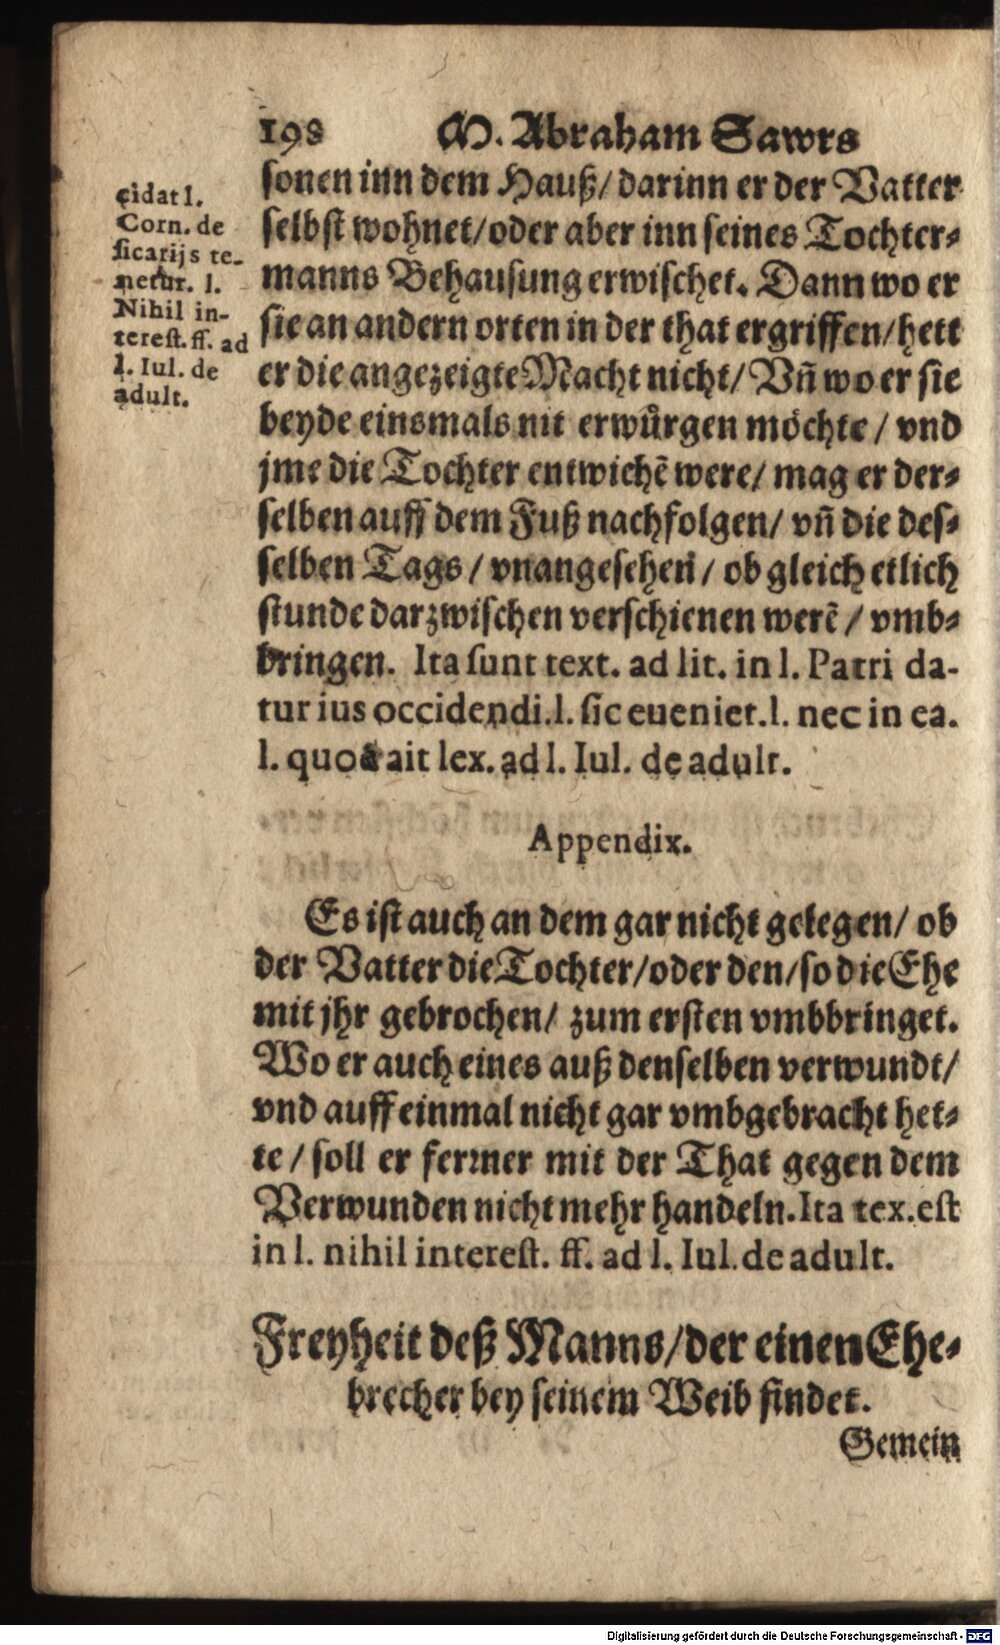 198 M. Abraham Sawrs
cidat l.
Corn. de
sicarijs te-
netur. l.
Nihil in-
terest. ff. ad
l. Iul. de
adult.
sonen inn dem Hauß / darinn er der Vatter
selbst wohnet / oder aber inn seines Tochter-
manns Behausung erwischet. Dann wo er
sie an andern orten in der that ergriffen / hett
er die angezeigte Macht nicht / Vñ wo er sie
beyde einsmals nit erwůrgen möchte / vnd
jme die Tochter entwichẽ were / mag er der-
selben auff dem Fuß nachfolgen / vñ die des-
selben Tags / vnangesehen / ob gleich etlich
stunde darzwischen verschienen werẽ / vmb-
bringen. Ita sunt text. ad lit. in l. Patri da-
tur ius occidendi. l. sic eueniet. l. nec in ea.
l. quod ait lex. ad l. Iul. de adult.
Appendix.
Es ist auch an dem gar nicht gelegen / ob
der Vatter die Tochter / oder den / so die Ehe
mit jhr gebrochen / zum ersten vmbbringet.
Wo er auch eines auß denselben verwundt /
vnd auff einmal nicht gar vmbgebracht het-
te / soll er ferrner mit der That gegen dem
Verwunden nicht mehr handeln. Ita tex. est
in l. nihil interest. ff. ad l. Iul. de adult.
Freyheit deß Manns / der einen Ehe-
brecher bey seinem Weib findet.
Gemein
Digitalisierung gefördert durch die Deutsche Forschungsgemeinschaft - DFG